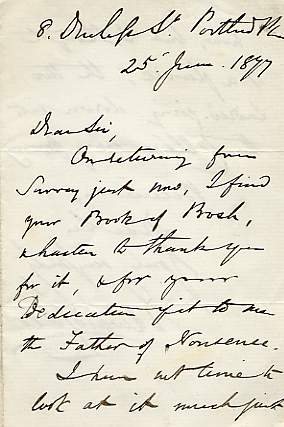 8. Duchess St. Portland Pl.
25 June. 1877
Dear Sir,
On returning from
Surrey just now, I find
your Book of Bosh,
& hasten to thank you
for it, & for your
Dedication of it to me
the Father of Nonsense.
I have not time to
look at it much just